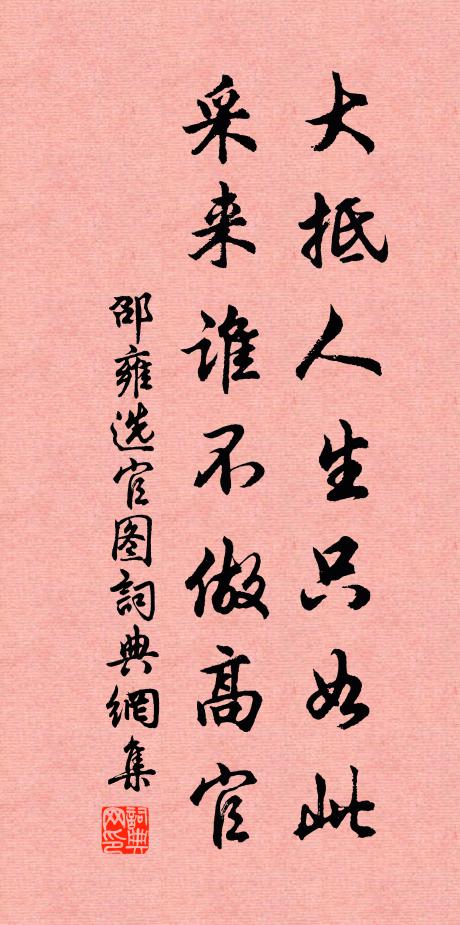 大抵人生只如此
采来谁不做高官
邵雍选官图詞典網集
詞典网印